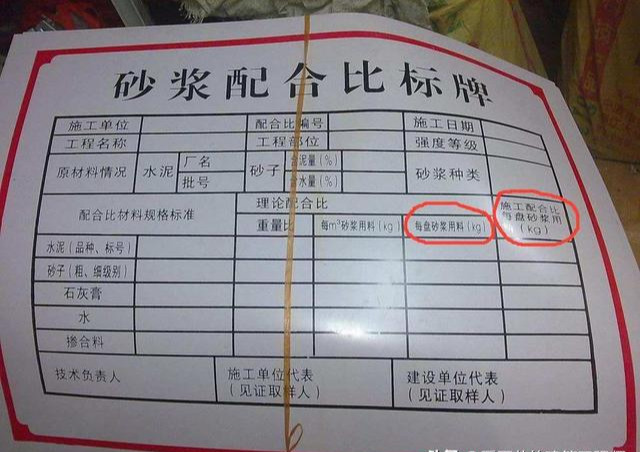 砂浆配合比标牌
施工单位 配合比编号 施工日期
工程名称 工程部位 强度等级
原材料情况 水泥 厂名 砂子 含泥量(%) 砂浆种类
批号 含水量(%)
配合比材料规格标准 理论配合比 施工配合比
每盘砂浆用
(kg)
重量比 每m³砂浆用料(kg) 每盘砂浆用料(kg)
水泥(品种、标号)
砂子(粗、细级别)
石灰膏
水
掺合料
技术负责人 施工单位代表 建设单位代表
(见证取样人) (见证取样人)